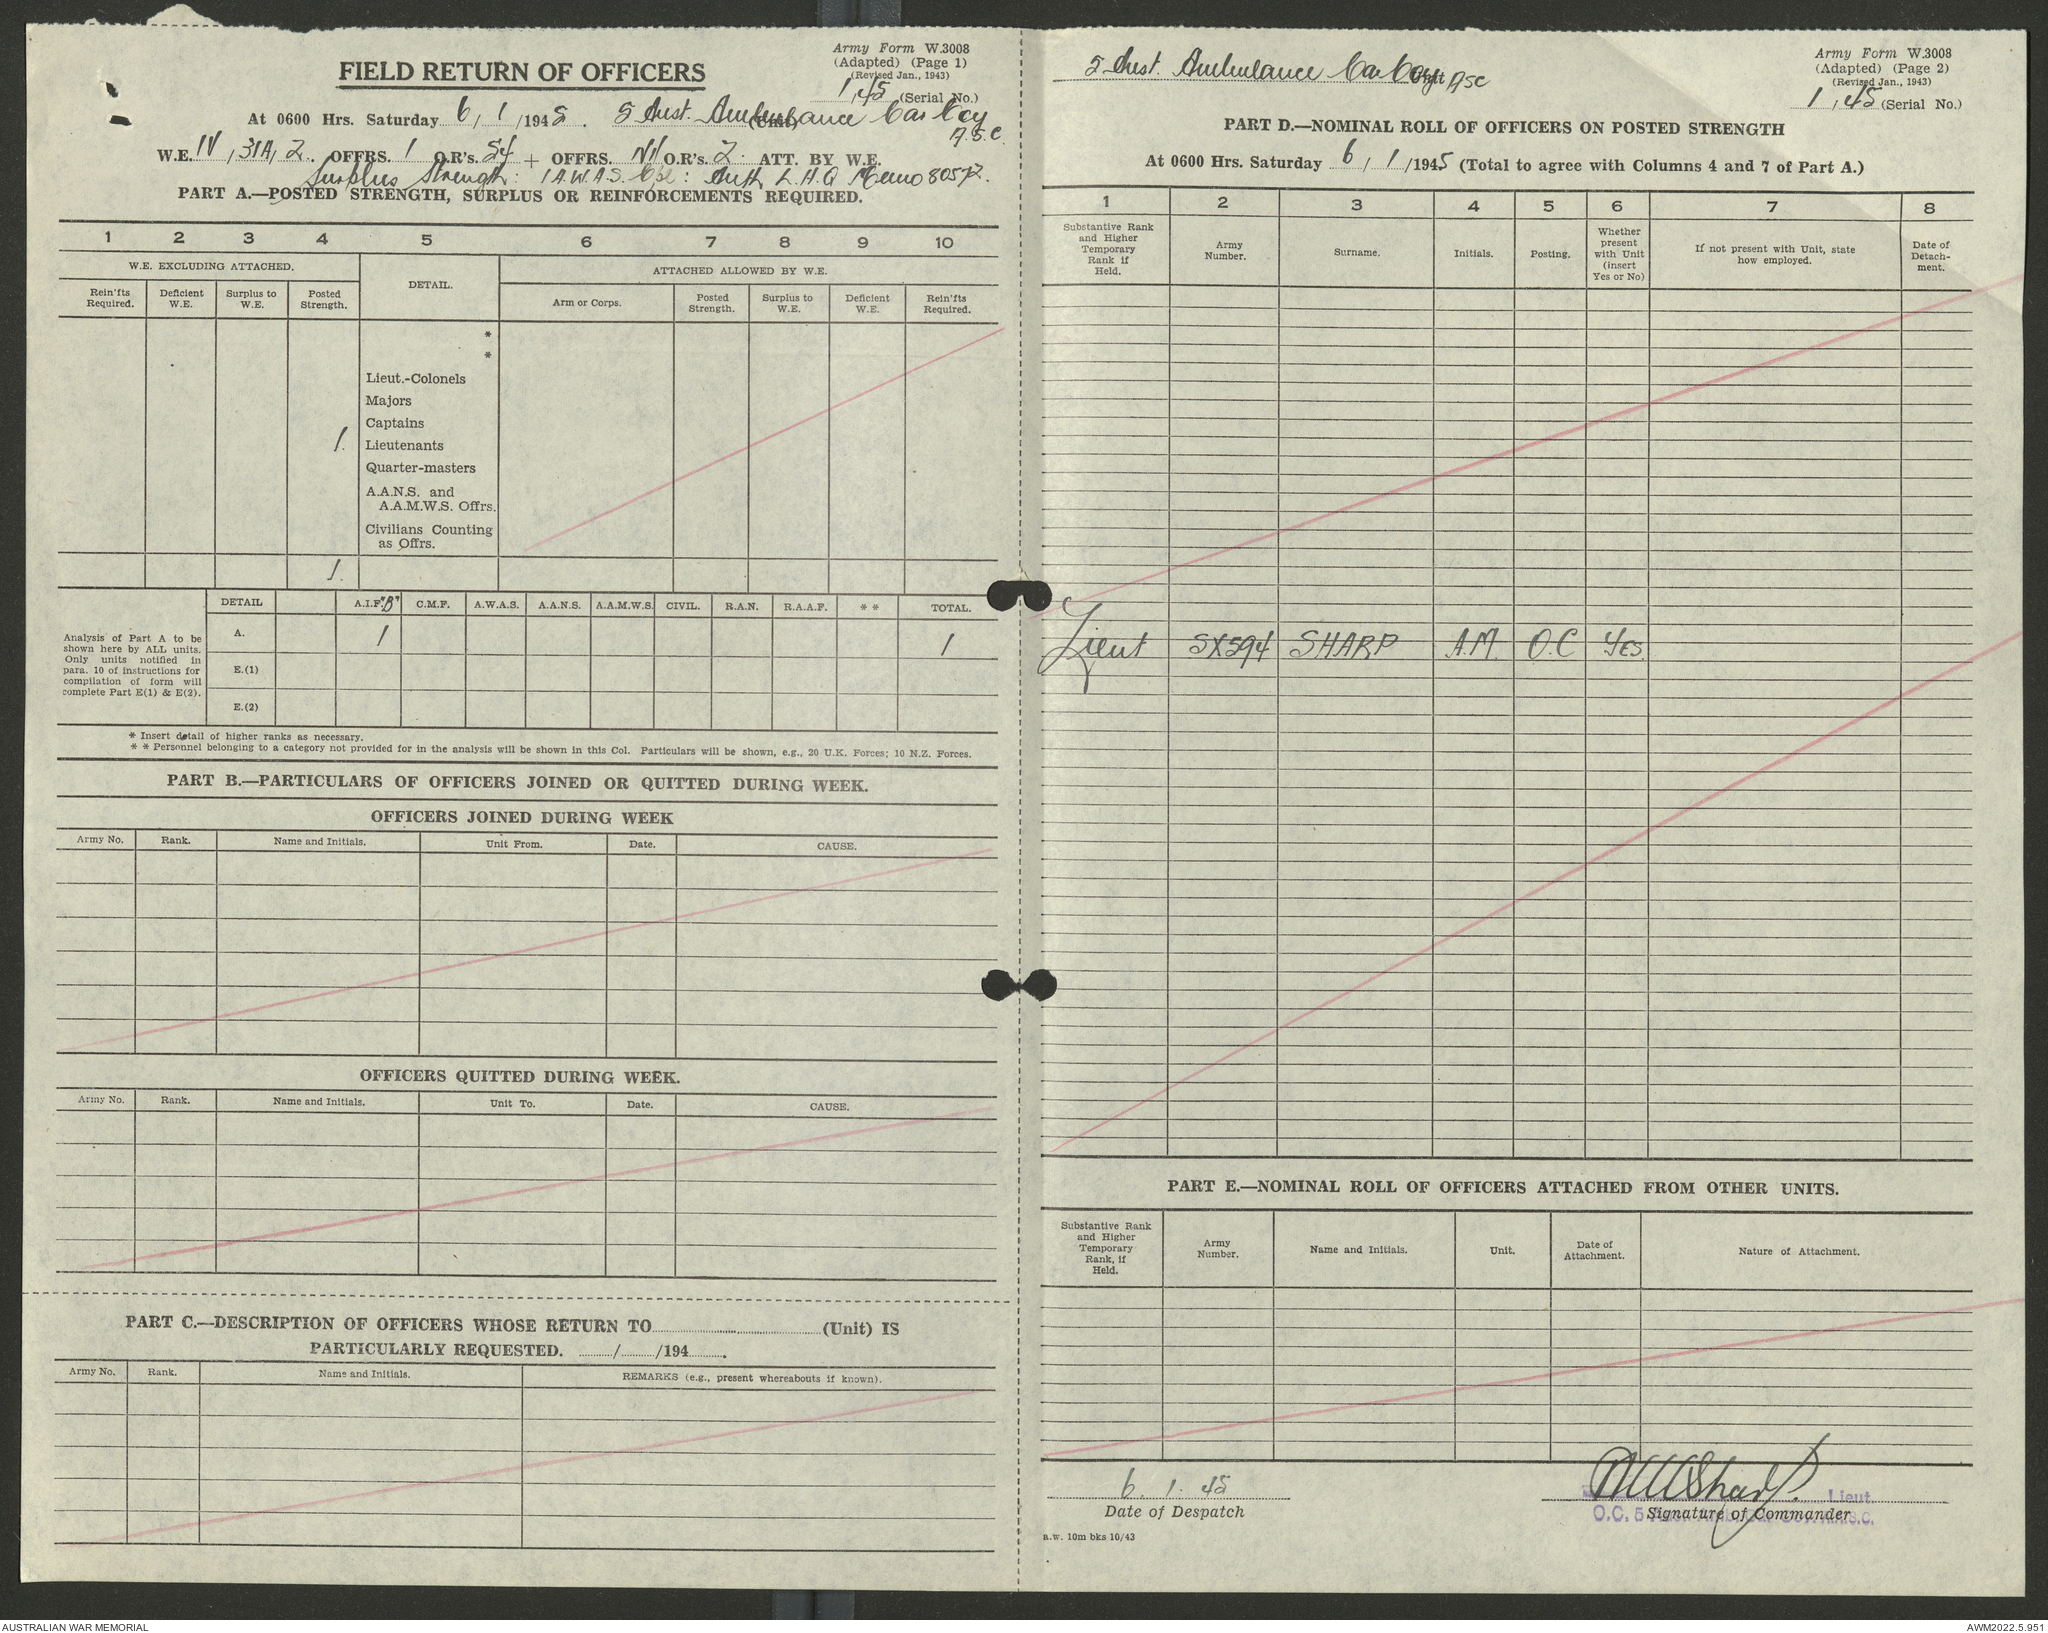 Army Form W.3008
(Adapted) (Page 1)
(Revised Jan., 1943)
FIELD RETURN OF OFFICERS
1/45 (Serial No.)
At 0600 Hrs. Saturday 6/1/1945. 5 Aust. Ambulance Car Coy (Unit)
A.S.C.
W.E. IV/31A/2. OFFRS. 1 O.R's. 54 + OFFRS. Nil O.R's. 2. ATT. BY W.E.
Surplus Strength: 1 A.W.A.S. Cpl: Auth L.H.Q Memo 80572.
PART A.—POSTED STRENGTH, SURPLUS OR REINFORCEMENTS REQUIRED.
1 2 3 4 5 6 7 8 9 10
W.E. EXCLUDING ATTACHED.
DETAIL.
ATTACHED ALLOWED BY W.E.
Rein'fts Required.
Deficient W.E.
Surplus to W.E.
Posted Strength.
Arm or Corps.
Posted Strength.
Surplus to W.E.
Deficient W.E.
Rein'fts Required.
*
*
Lieut.-Colonels
Majors
Captains
1. Lieutenants
Quarter-masters
A.A.N.S. and
A.A.M.W.S. Offrs.
Civilians Counting
as Offrs.
1.
DETAIL A.I.F. "B" C.M.F. A.W.A.S. A.A.N.S. A.A.M.W.S. CIVIL. R.A.N. R.A.A.F. * * TOTAL.
Analysis of Part A to be
shown here by ALL units.
Only units notified in
para. 10 of instructions for
compilation of form will
complete Part E(1) & E(2).
A. 1 1
E.(1)
E.(2)
* Insert detail of higher ranks as necessary.
* * Personnel belonging to a category not provided for in the analysis will be shown in this Col. Particulars will be shown, e.g., 20 U.K. Forces; 10 N.Z. Forces.
PART B.—PARTICULARS OF OFFICERS JOINED OR QUITTED DURING WEEK.
OFFICERS JOINED DURING WEEK
Army No. Rank. Name and Initials. Unit From. Date. CAUSE.
OFFICERS QUITTED DURING WEEK.
Army No. Rank. Name and Initials. Unit To. Date. CAUSE.
PART C.—DESCRIPTION OF OFFICERS WHOSE RETURN TO (Unit) IS
PARTICULARLY REQUESTED. / /194 .
Army No. Rank. Name and Initials. REMARKS (e.g., present whereabouts if known).
5 Aust. Ambulance Car Coy ASC
Army Form W.3008
(Adapted) (Page 2)
(Revised Jan., 1943)
1/45 (Serial No.)
PART D.—NOMINAL ROLL OF OFFICERS ON POSTED STRENGTH
At 0600 Hrs. Saturday 6/1/1945 (Total to agree with Columns 4 and 7 of Part A.)
1 2 3 4 5 6 7 8
Substantive Rank and Higher Temporary Rank if Held.
Army Number.
Surname.
Initials.
Posting.
Whether present with Unit (insert Yes or No)
If not present with Unit, state how employed.
Date of Detach-ment.
Lieut SX594 SHARP A.M. O.C YES
PART E.—NOMINAL ROLL OF OFFICERS ATTACHED FROM OTHER UNITS.
Substantive Rank and Higher Temporary Rank, if Held.
Army Number.
Name and Initials.
Unit.
Date of Attachment.
Nature of Attachment.
6. 1. 45
Date of Despatch
Lieut
O.C. 5
Signature of Commander
a.w. 10m bks 10/43
AUSTRALIAN WAR MEMORIAL
AWM2022.5.951